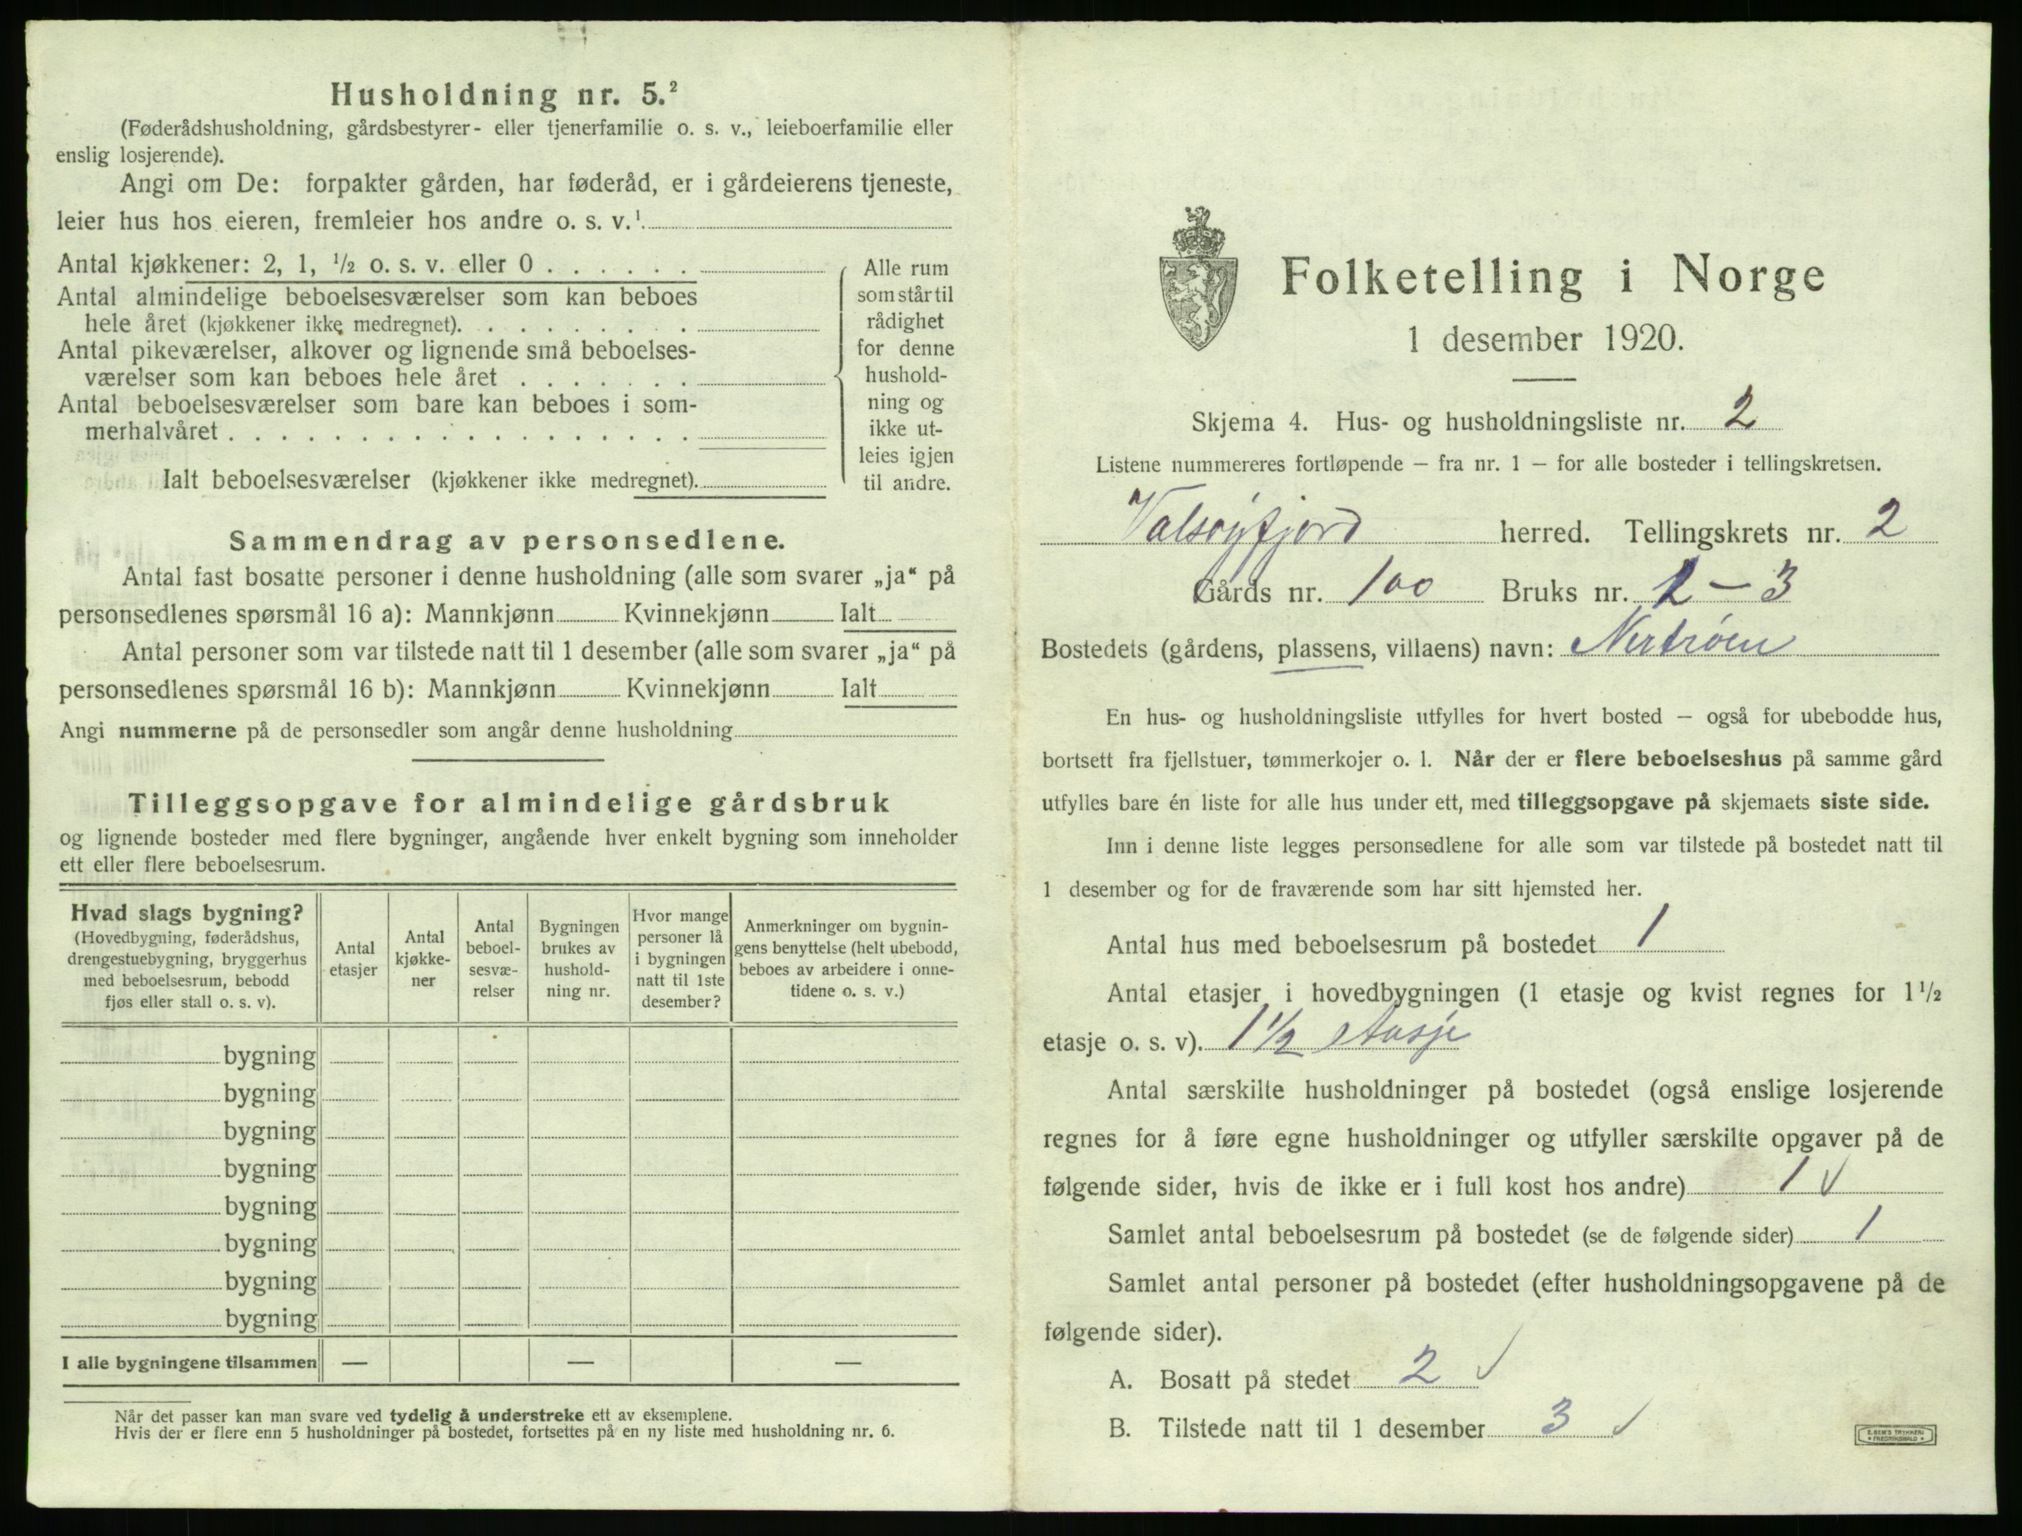 Husholdning nr. 5.²
(Føderådshusholdning, gårdsbestyrer- eller tjenerfamilie o. s. v., leieboerfamilie eller
enslig losjerende).
Angi om De: forpakter gården, har føderåd, er i gårdeierens tjeneste,
leier hus hos eieren, fremleier hos andre o. s. v.¹
Antal kjøkkener: 2, 1, ½ o. s. v. eller 0 . . . . . .
Antal almindelige beboelsesværelser som kan beboes
hele året (kjøkkener ikke medregnet). . . . . . . . .
Antal pikeværelser, alkover og lignende små beboelses-
værelser som kan beboes hele året . . . . . . .
Antal beboelsesværelser som bare kan beboes i som-
merhalvåret . . . . . . . . . . . . . . . . . .
Ialt beboelsesværelser (kjøkkener ikke medregnet).
Alle rum
som står til
rådighet
for denne
hushold-
ning og
ikke ut-
leies igjen
til andre.
Sammendrag av personsedlene.
Antal fast bosatte personer i denne husholdning (alle som svarer „ja“ på
personsedlenes spørsmål 16 a): Mannkjønn Kvinnekjønn Ialt
Antal personer som var tilstede natt til 1 desember (alle som svarer „ja“ på
personsedlenes spørsmål 16 b): Mannkjønn Kvinnekjønn Ialt
Angi nummerne på de personsedler som angår denne husholdning
Tilleggsopgave for almindelige gårdsbruk
og lignende bosteder med flere bygninger, angående hver enkelt bygning som inneholder
ett eller flere beboelsesrum.
Hvad slags bygning?
(Hovedbygning, føderådshus,
drengestuebygning, bryggerhus
med beboelsesrum, bebodd
fjøs eller stall o. s. v).
Antal
etasjer
Antal
kjøkke-
ner
Antal
beboel-
sesvæ-
relser
Bygningen
brukes av
hushold-
ning nr.
Hvor mange
personer lå
i bygningen
natt til 1ste
desember?
Anmerkninger om bygnin-
gens benyttelse (helt ubebodd,
beboes av arbeidere i onne-
tidene o. s. v.)
bygning
bygning
bygning
bygning
bygning
bygning
bygning
bygning
I alle bygningene tilsammen — — —
Når det passer kan man svare ved tydelig å understreke ett av eksemplene.
Hvis der er flere enn 5 husholdninger på bostedet, fortsettes på en ny liste med husholdning nr. 6.
Folketelling i Norge
1 desember 1920.
Skjema 4. Hus- og husholdningsliste nr. 2
Listene nummereres fortløpende – fra nr. 1 – for alle bosteder i tellingskretsen.
Valsøyfjord herred. Tellingskrets nr. 2
Gårds nr. 100 Bruks nr. 2 – 3
Bostedets (gårdens, plassens, villaens) navn: Nertrøen
En hus- og husholdningsliste utfylles for hvert bosted – også for ubebodde hus,
bortsett fra fjellstuer, tømmerkojer o. l. Når der er flere beboelseshus på samme gård
utfylles bare én liste for alle hus under ett, med tilleggsopgave på skjemaets siste side.
Inn i denne liste legges personsedlene for alle som var tilstede på bostedet natt til
1 desember og for de fraværende som har sitt hjemsted her.
Antal hus med beboelsesrum på bostedet 1
Antal etasjer i hovedbygningen (1 etasje og kvist regnes for 1½
etasje o. s. v). 1½ Aasje
Antal særskilte husholdninger på bostedet (også enslige losjerende
regnes for å føre egne husholdninger og utfyller særskilte opgaver på de
følgende sider, hvis de ikke er i full kost hos andre) 1 ✓
Samlet antal beboelsesrum på bostedet (se de følgende sider) 1
Samlet antal personer på bostedet (efter husholdningsopgavene på de
følgende sider).
A. Bosatt på stedet 2 ✓
B. Tilstede natt til 1 desember 3 ✓